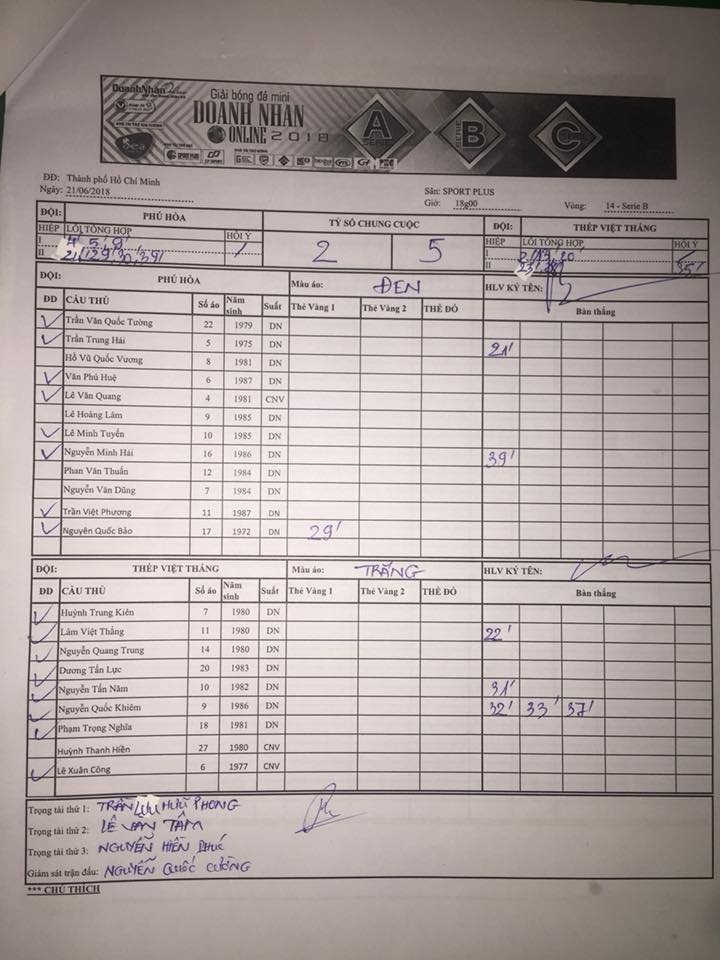 DoanhNhân
Giải bóng đá mini
DOANH NHÂN
ONLINE 2018
A SERIE
SERIE B
C
Sea
SPORT PLUS
ĐĐ: Thành phố Hồ Chí Minh
Ngày: 21/06/2018 Sân: SPORT PLUS
Giờ: 18g00 Vòng: 14 - Serie B
ĐỘI: PHÚ HÒA TỶ SỐ CHUNG CUỘC ĐỘI: THÉP VIỆT THẮNG
HIỆP LỖI TỔNG HỢP HỘI Ý 2 5 HIỆP LỖI TỔNG HỢP HỘI Ý
I 4' 5' 9' I
II II 35'
ĐỘI: PHÚ HÒA Màu áo: ĐEN HLV KÝ TÊN:
ĐD CẦU THỦ Số áo Năm sinh Suất Thẻ Vàng 1 Thẻ Vàng 2 THẺ ĐỎ Bàn thắng
Trần Văn Quốc Tường 22 1979 DN
Trần Trung Hải 5 1975 DN 21'
Hồ Vũ Quốc Vương 8 1981 DN
Văn Phú Huệ 6 1987 DN
Lê Văn Quang 4 1981 CNV
Lê Hoàng Lâm 9 1985 DN
Lê Minh Tuyển 10 1985 DN
Nguyễn Minh Hải 16 1986 DN 39'
Phan Văn Thuấn 12 1984 DN
Nguyễn Văn Dũng 7 1984 DN
Trần Việt Phương 11 1987 DN
Nguyên Quốc Bảo 17 1972 DN 29'
ĐỘI: THÉP VIỆT THẮNG Màu áo: TRẮNG HLV KÝ TÊN:
ĐD CẦU THỦ Số áo Năm sinh Suất Thẻ Vàng 1 Thẻ Vàng 2 THẺ ĐỎ Bàn thắng
Huỳnh Trung Kiên 7 1980 DN
Lâm Việt Thắng 11 1980 DN 22'
Nguyễn Quang Trung 14 1980 DN
Dương Tấn Lực 20 1983 DN
Nguyễn Tấn Năm 10 1982 DN 31'
Nguyễn Quốc Khiêm 9 1986 DN 32' 33' 37'
Phạm Trọng Nghĩa 18 1981 DN
Huỳnh Thanh Hiền 27 1980 CNV
Lê Xuân Công 6 1977 CNV
Trọng tài thứ 1: TRẦN LƯU HỮU PHONG
Trọng tài thứ 2: LÊ VĂN TÂM
Trọng tài thứ 3: NGUYỄN HIỀN PHÚC
Giám sát trận đấu: NGUYỄN QUỐC CƯỜNG
*** CHÚ THÍCH